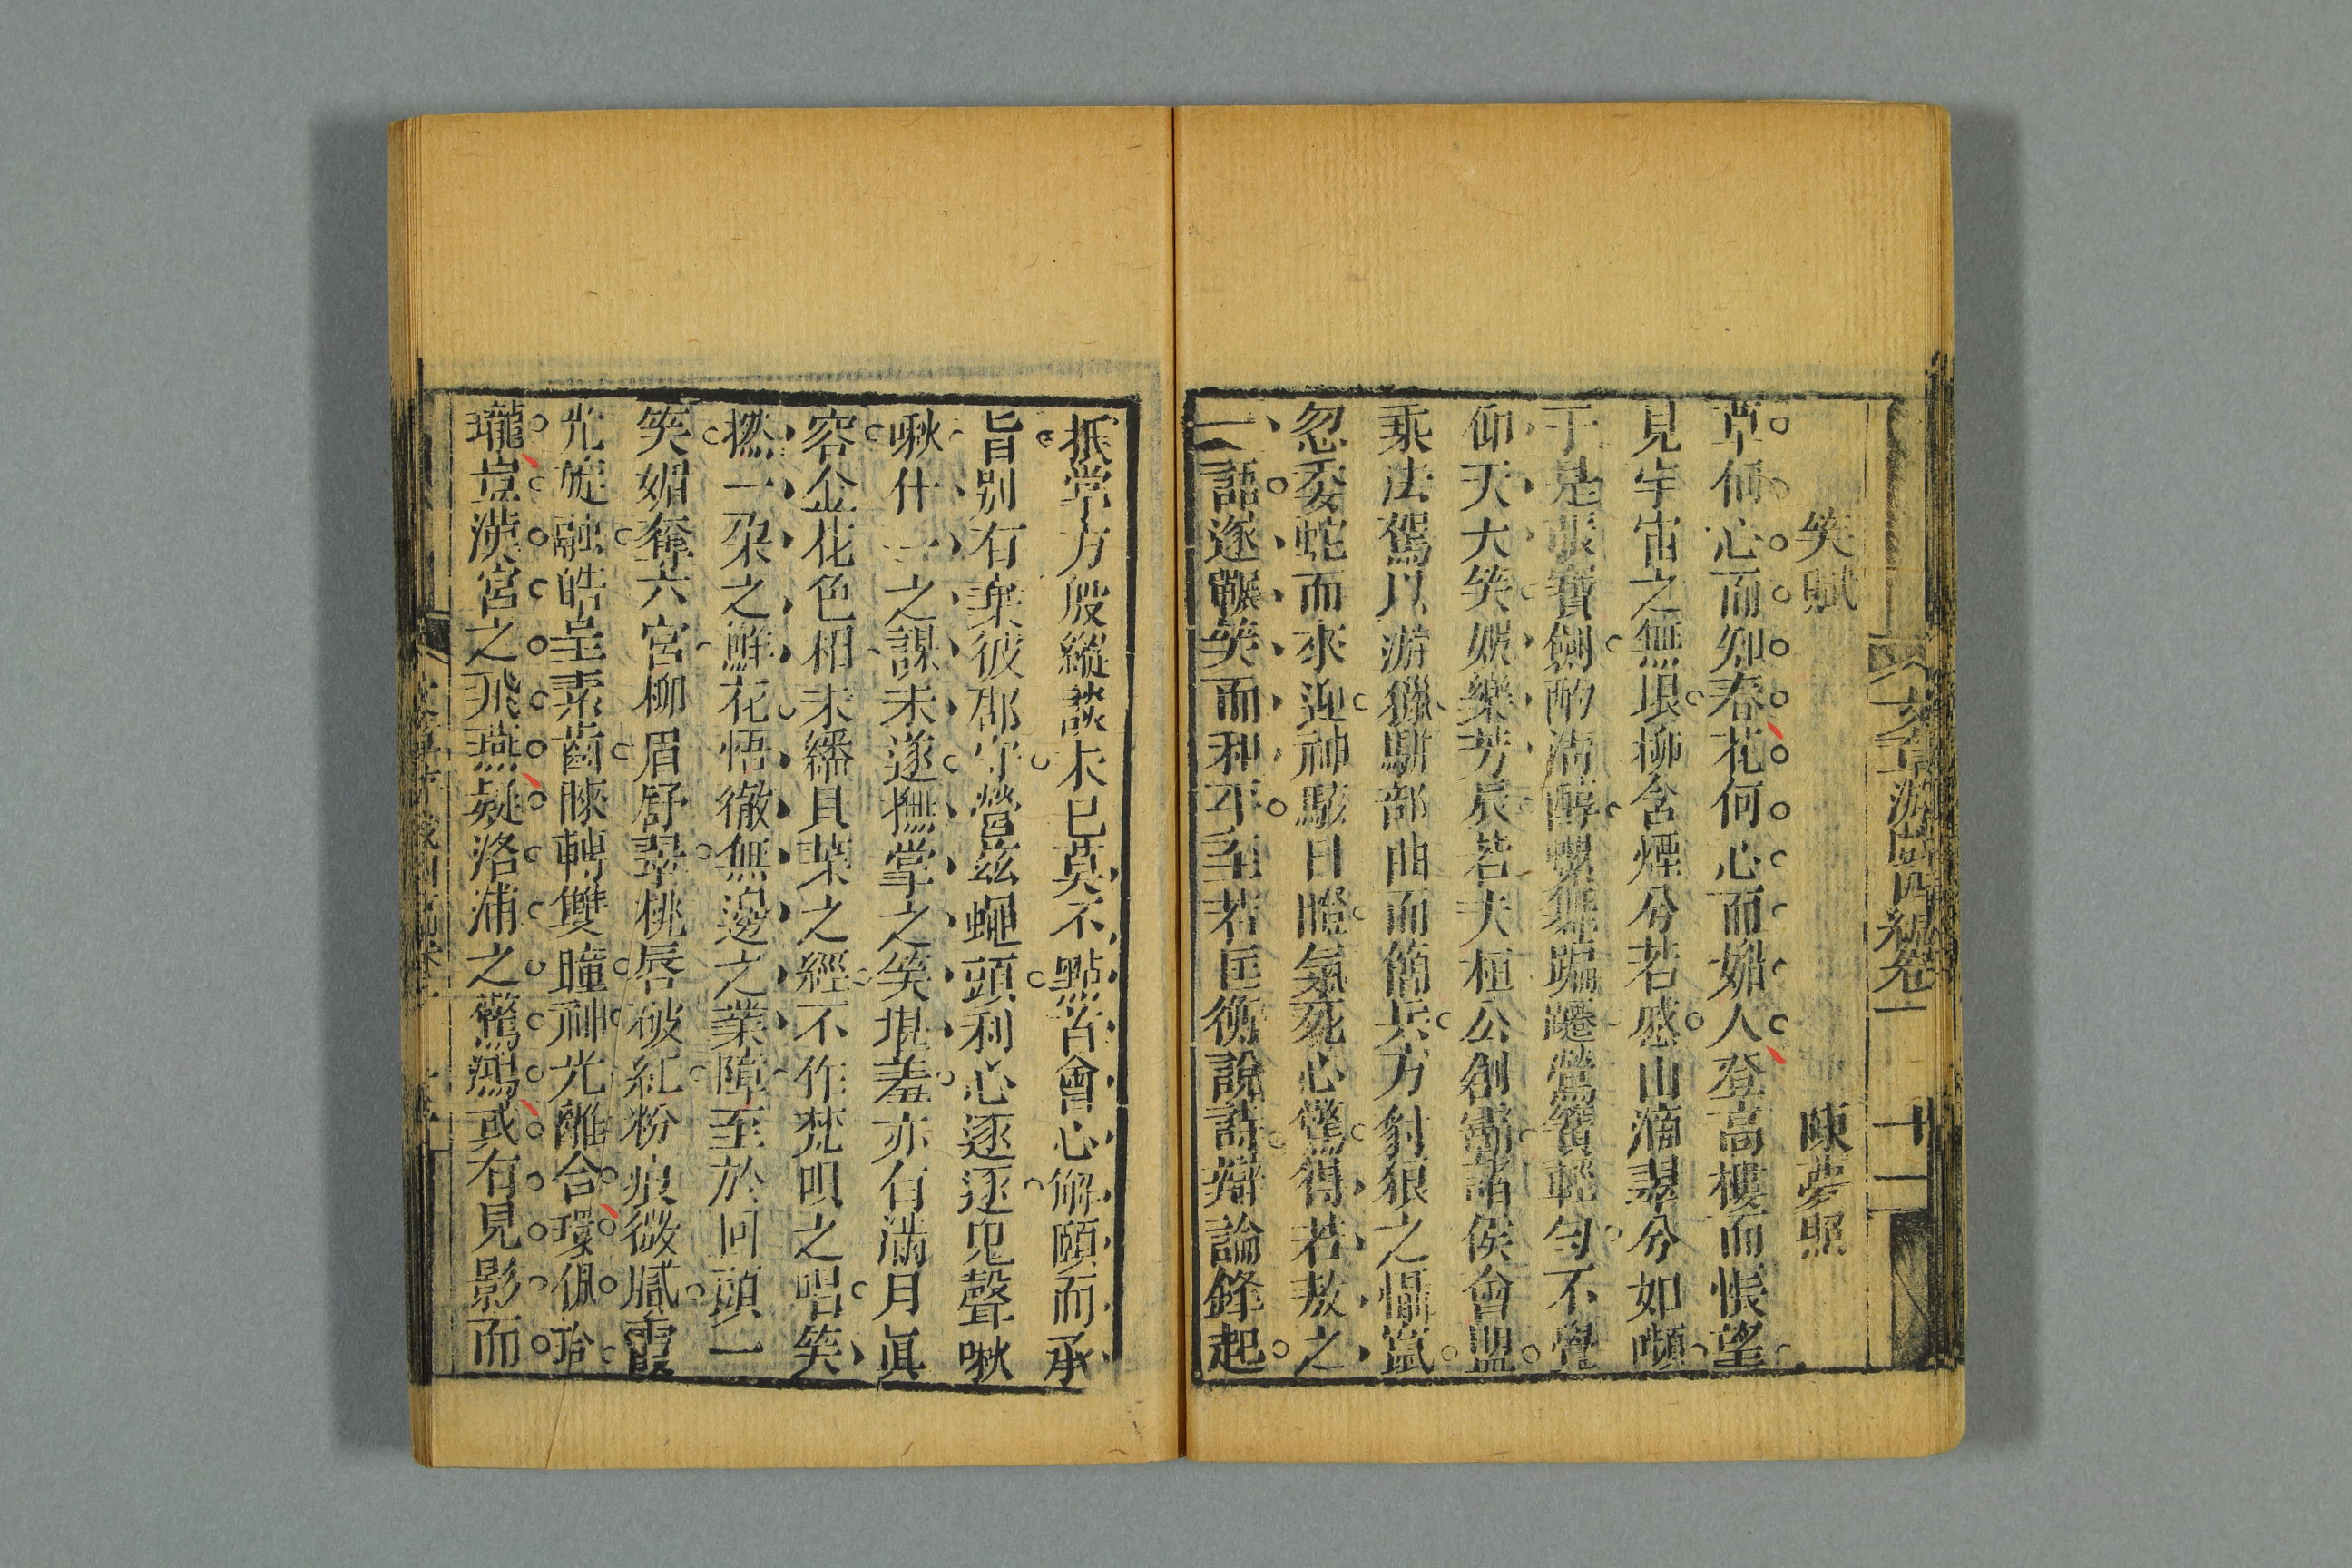 笑賦 陳夢照
草何心而卿春花何心而媚人登高樓而悵望
見宇宙之無垠柳含煙兮若慼山滴翠兮如嚬
于是張寶劍酌清醇蹁躚鶯簧輕勻不覺
仰天大笑娛樂芳辰若夫桓公創霸諸侯會盟
乘法駕以游獵駢部曲而簡兵方豺狼之懾竄
忽委蛇而來迎神駭目瞪氣死心驚得若敖之
一語遂囅笑而和平至若匡衡說詩辯論鋒起
抵掌方殷縱談未已莫不點首會心解頤而承
旨別有棄彼郡守營茲蠅頭利心逐逐鬼聲啾
啾什一之謀未遂撫掌之笑堪羞亦有滿月眞
容金花色相未繙貝葉之經不作梵唄之唱笑
撚一朶之鮮花悟徹無邊之業障至於回頭一
笑媚奪六宮柳眉舒翠桃唇破紅粉痕微膩霞
光旋融皓呈素齒睞轉雙瞳神光離合環佩玲
瓏豈漢宮之飛燕疑洛浦之驚鴻或有見影而